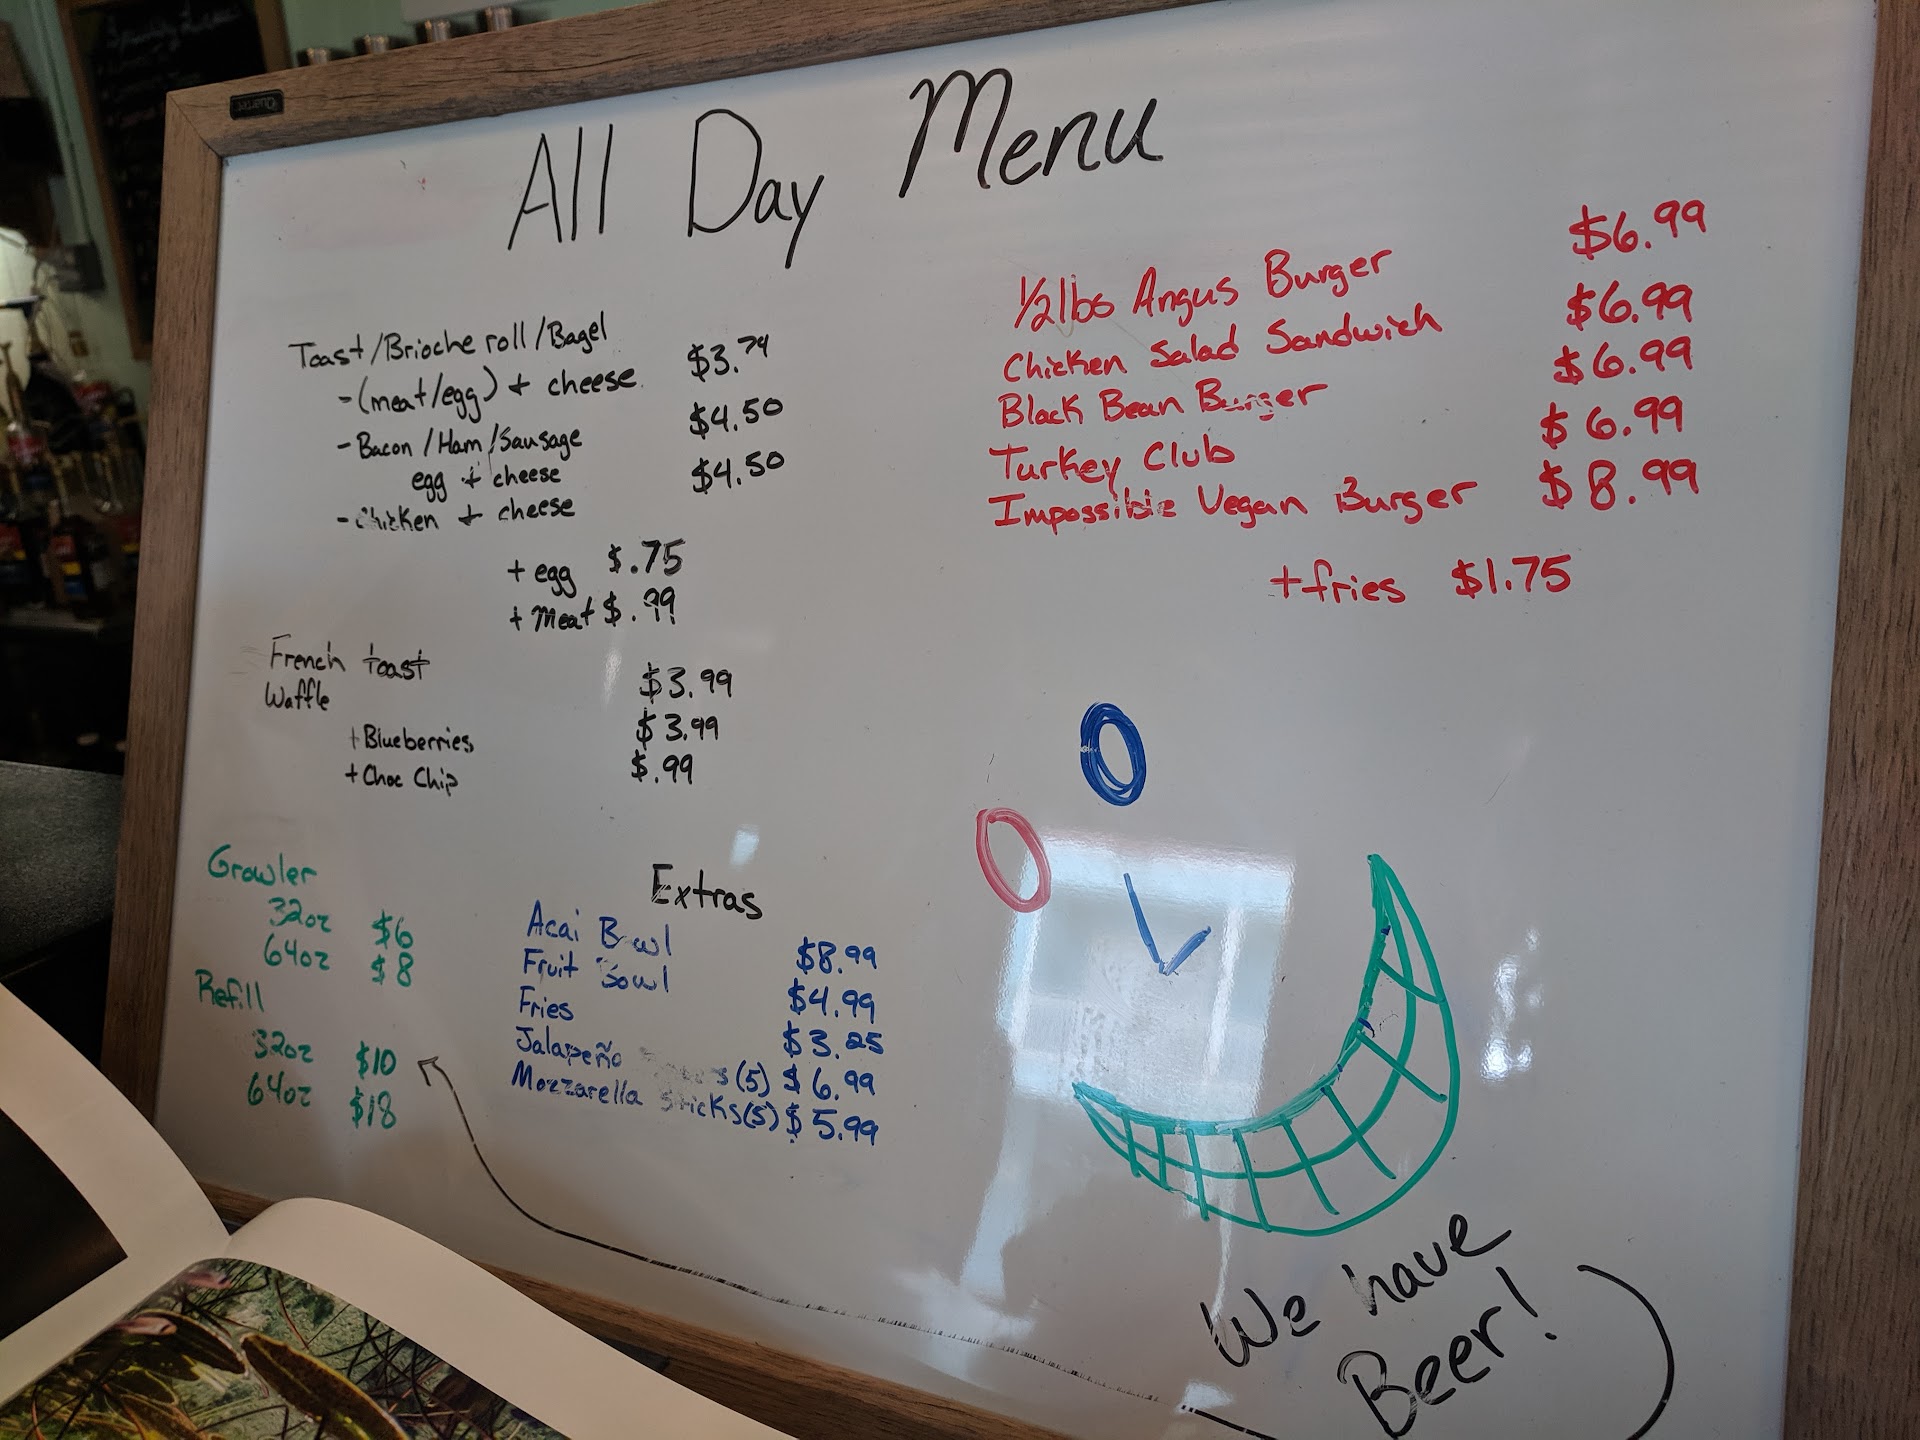 All Day Menu
Toast/Brioche roll/Bagel
-(meat/egg) + cheese $3.79
-Bacon/Ham/Sausage $4.50
egg + cheese
-Chicken + cheese $4.50
+ egg $.75
+ Meat $.99
French toast $3.99
Waffle $3.99
+Blueberries $.99
+Choc Chip
Growler
32oz $6
64oz $8
Refill
32oz $10
64oz $18
Extras
Acai Bowl $8.99
Fruit Bowl $4.99
Fries $3.25
Jalapeño (5) $6.99
Mozzarella sticks(5) $5.99
1/2lbs Angus Burger $6.99
Chicken Salad Sandwich $6.99
Black Bean Burger $6.99
Turkey Club $6.99
Impossible Vegan Burger $8.99
+fries $1.75
We have
Beer!
Quartet